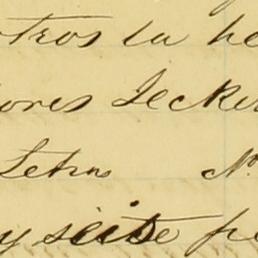 otros la he
ores Jecker
Letras No.
y seis pe